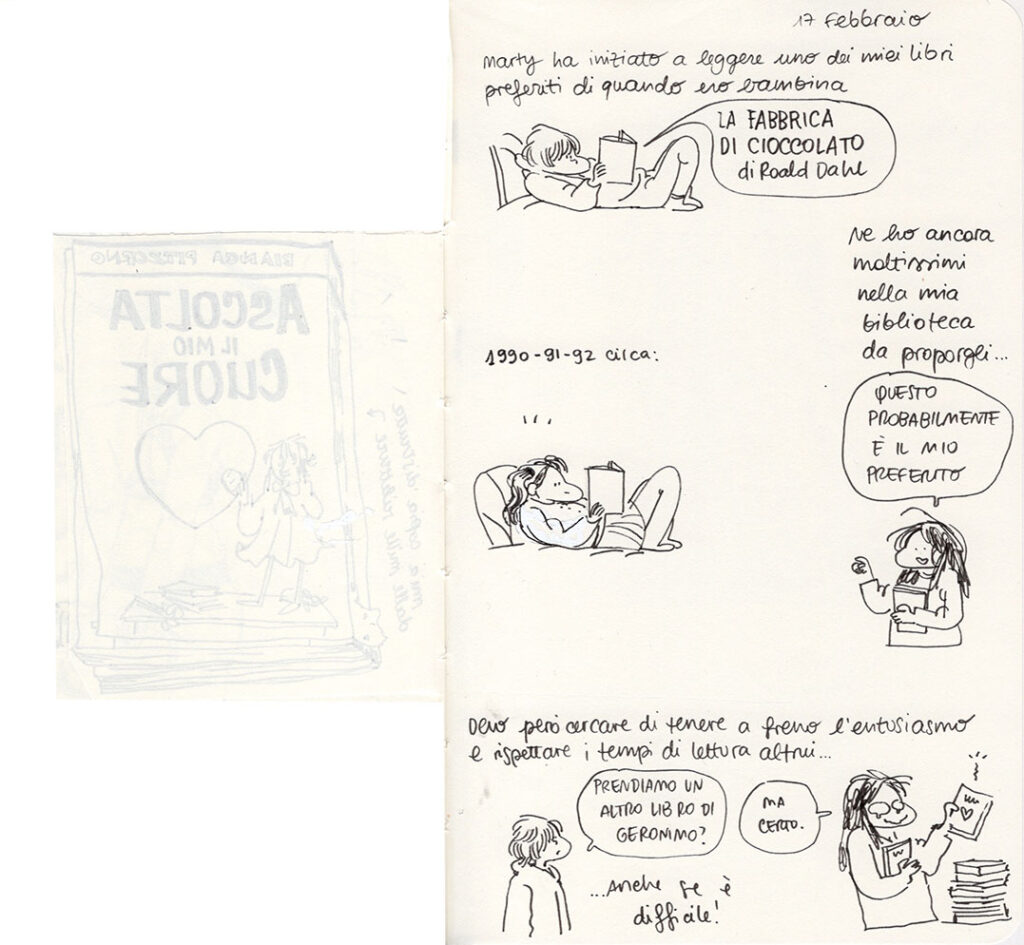 17 febbraio
Marty ha iniziato a leggere uno dei miei libri
preferiti di quando ero bambina
LA FABBRICA
DI CIOCCOLATO
di Roald Dahl
Ne ho ancora
moltissimi
nella mia
biblioteca
da proporgli...
1990-91-92 circa:
QUESTO
PROBABILMENTE
È IL MIO
PREFERITO
BIANCA PITZORNO
ASCOLTA
IL MIO
CUORE
Devo però cercare di tenere a freno l'entusiasmo
e rispettare i tempi di lettura altrui...
PRENDIAMO UN
ALTRO LIBRO DI
GERONIMO?
MA
CERTO.
...Anche se è
difficile!